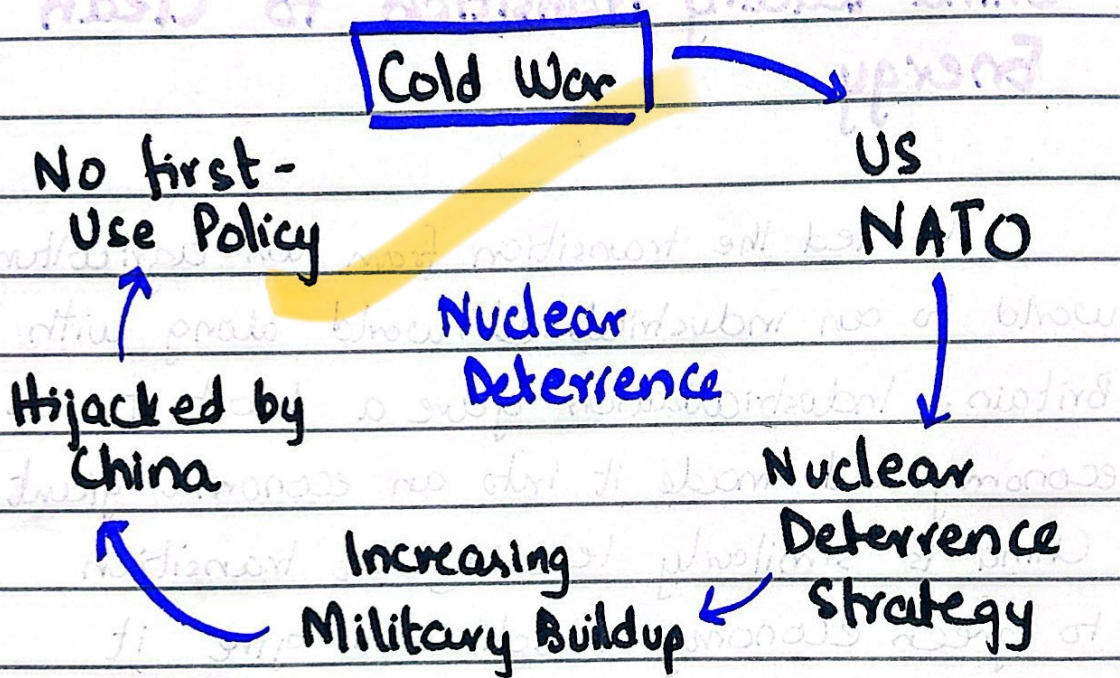 Cold War
US
NATO
Nuclear
Deterrence
Strategy
Increasing
Military Buildup
Hijacked by
China
No first-
Use Policy
Nuclear
Deterrence